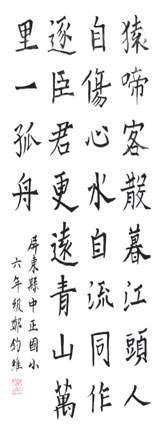 猿啼客散暮江頭人
自傷心水自流同作
逐臣君更遠青山萬
里一孤舟
屏東縣中正國小
六年級鄭鈞維